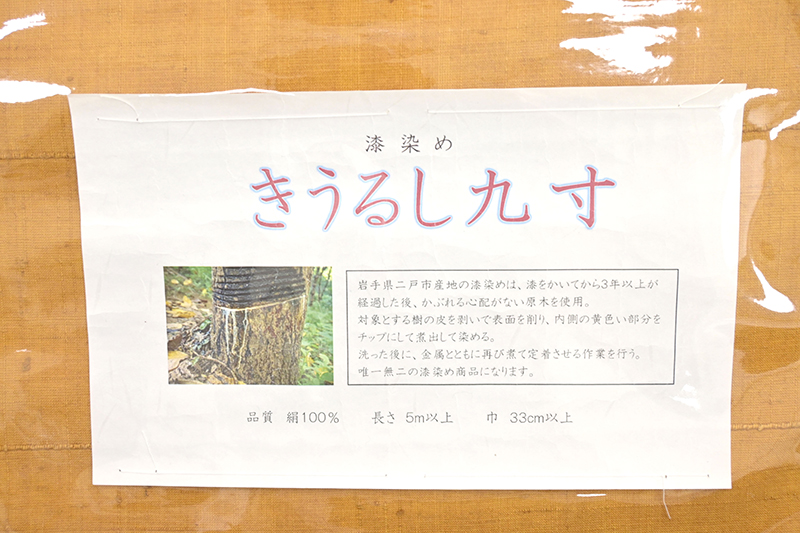 漆染め
きうるし九寸
岩手県二戸市産地の漆染めは、漆をかいてから3年以上が
経過した後、かぶれる心配がない原木を使用。
対象とする樹の皮を剥いで表面を削り、内側の黄色い部分を
チップにして煮出して染める。
洗った後に、金属とともに再び煮て定着させる作業を行う。
唯一無二の漆染め商品になります。
品質 絹100% 長さ 5m以上 巾 33cm以上